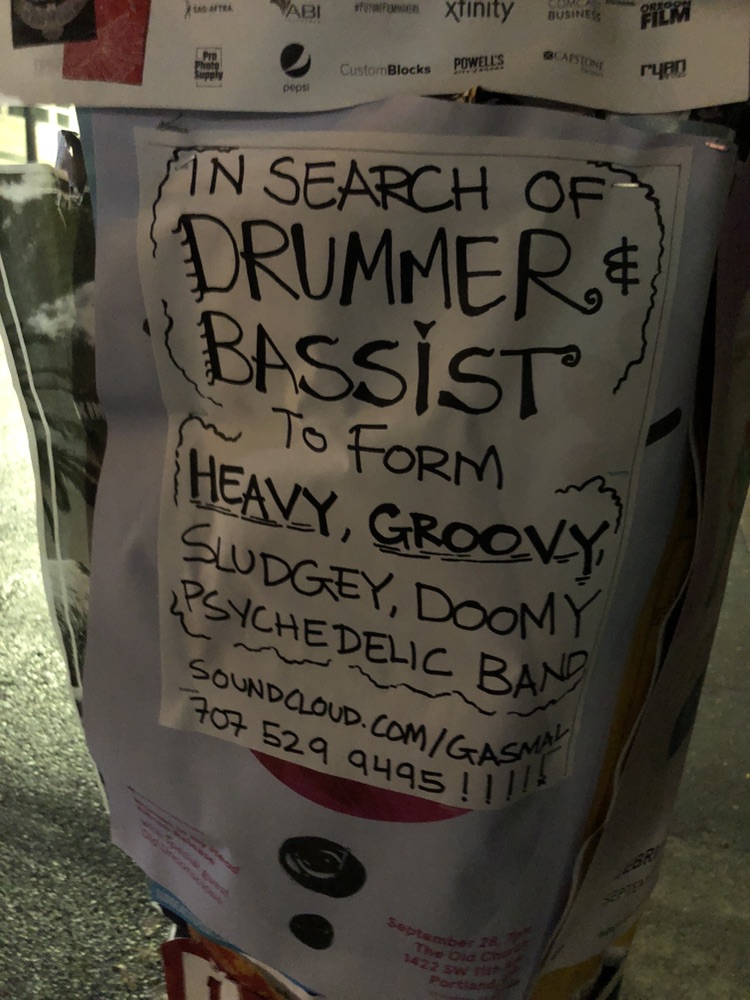 SAG-AFTRA
ABI
#FUTUREFILMMAKERS
xfinity
COMCAST
BUSINESS
OREGON
FILM
Pro
Photo
Supply
pepsi
CustomBlocks
POWELL'S
CAPSTONE
ryan
IN SEARCH OF
DRUMMER &
BASSIST
TO FORM
HEAVY, GROOVY,
SLUDGEY, DOOMY
PSYCHEDELIC BAND
SOUNDCLOUD.COM/GASMAL
707 529 9495 !!!!!
September 28, 7pm
The Old Church
1422 SW 11th
Portland,